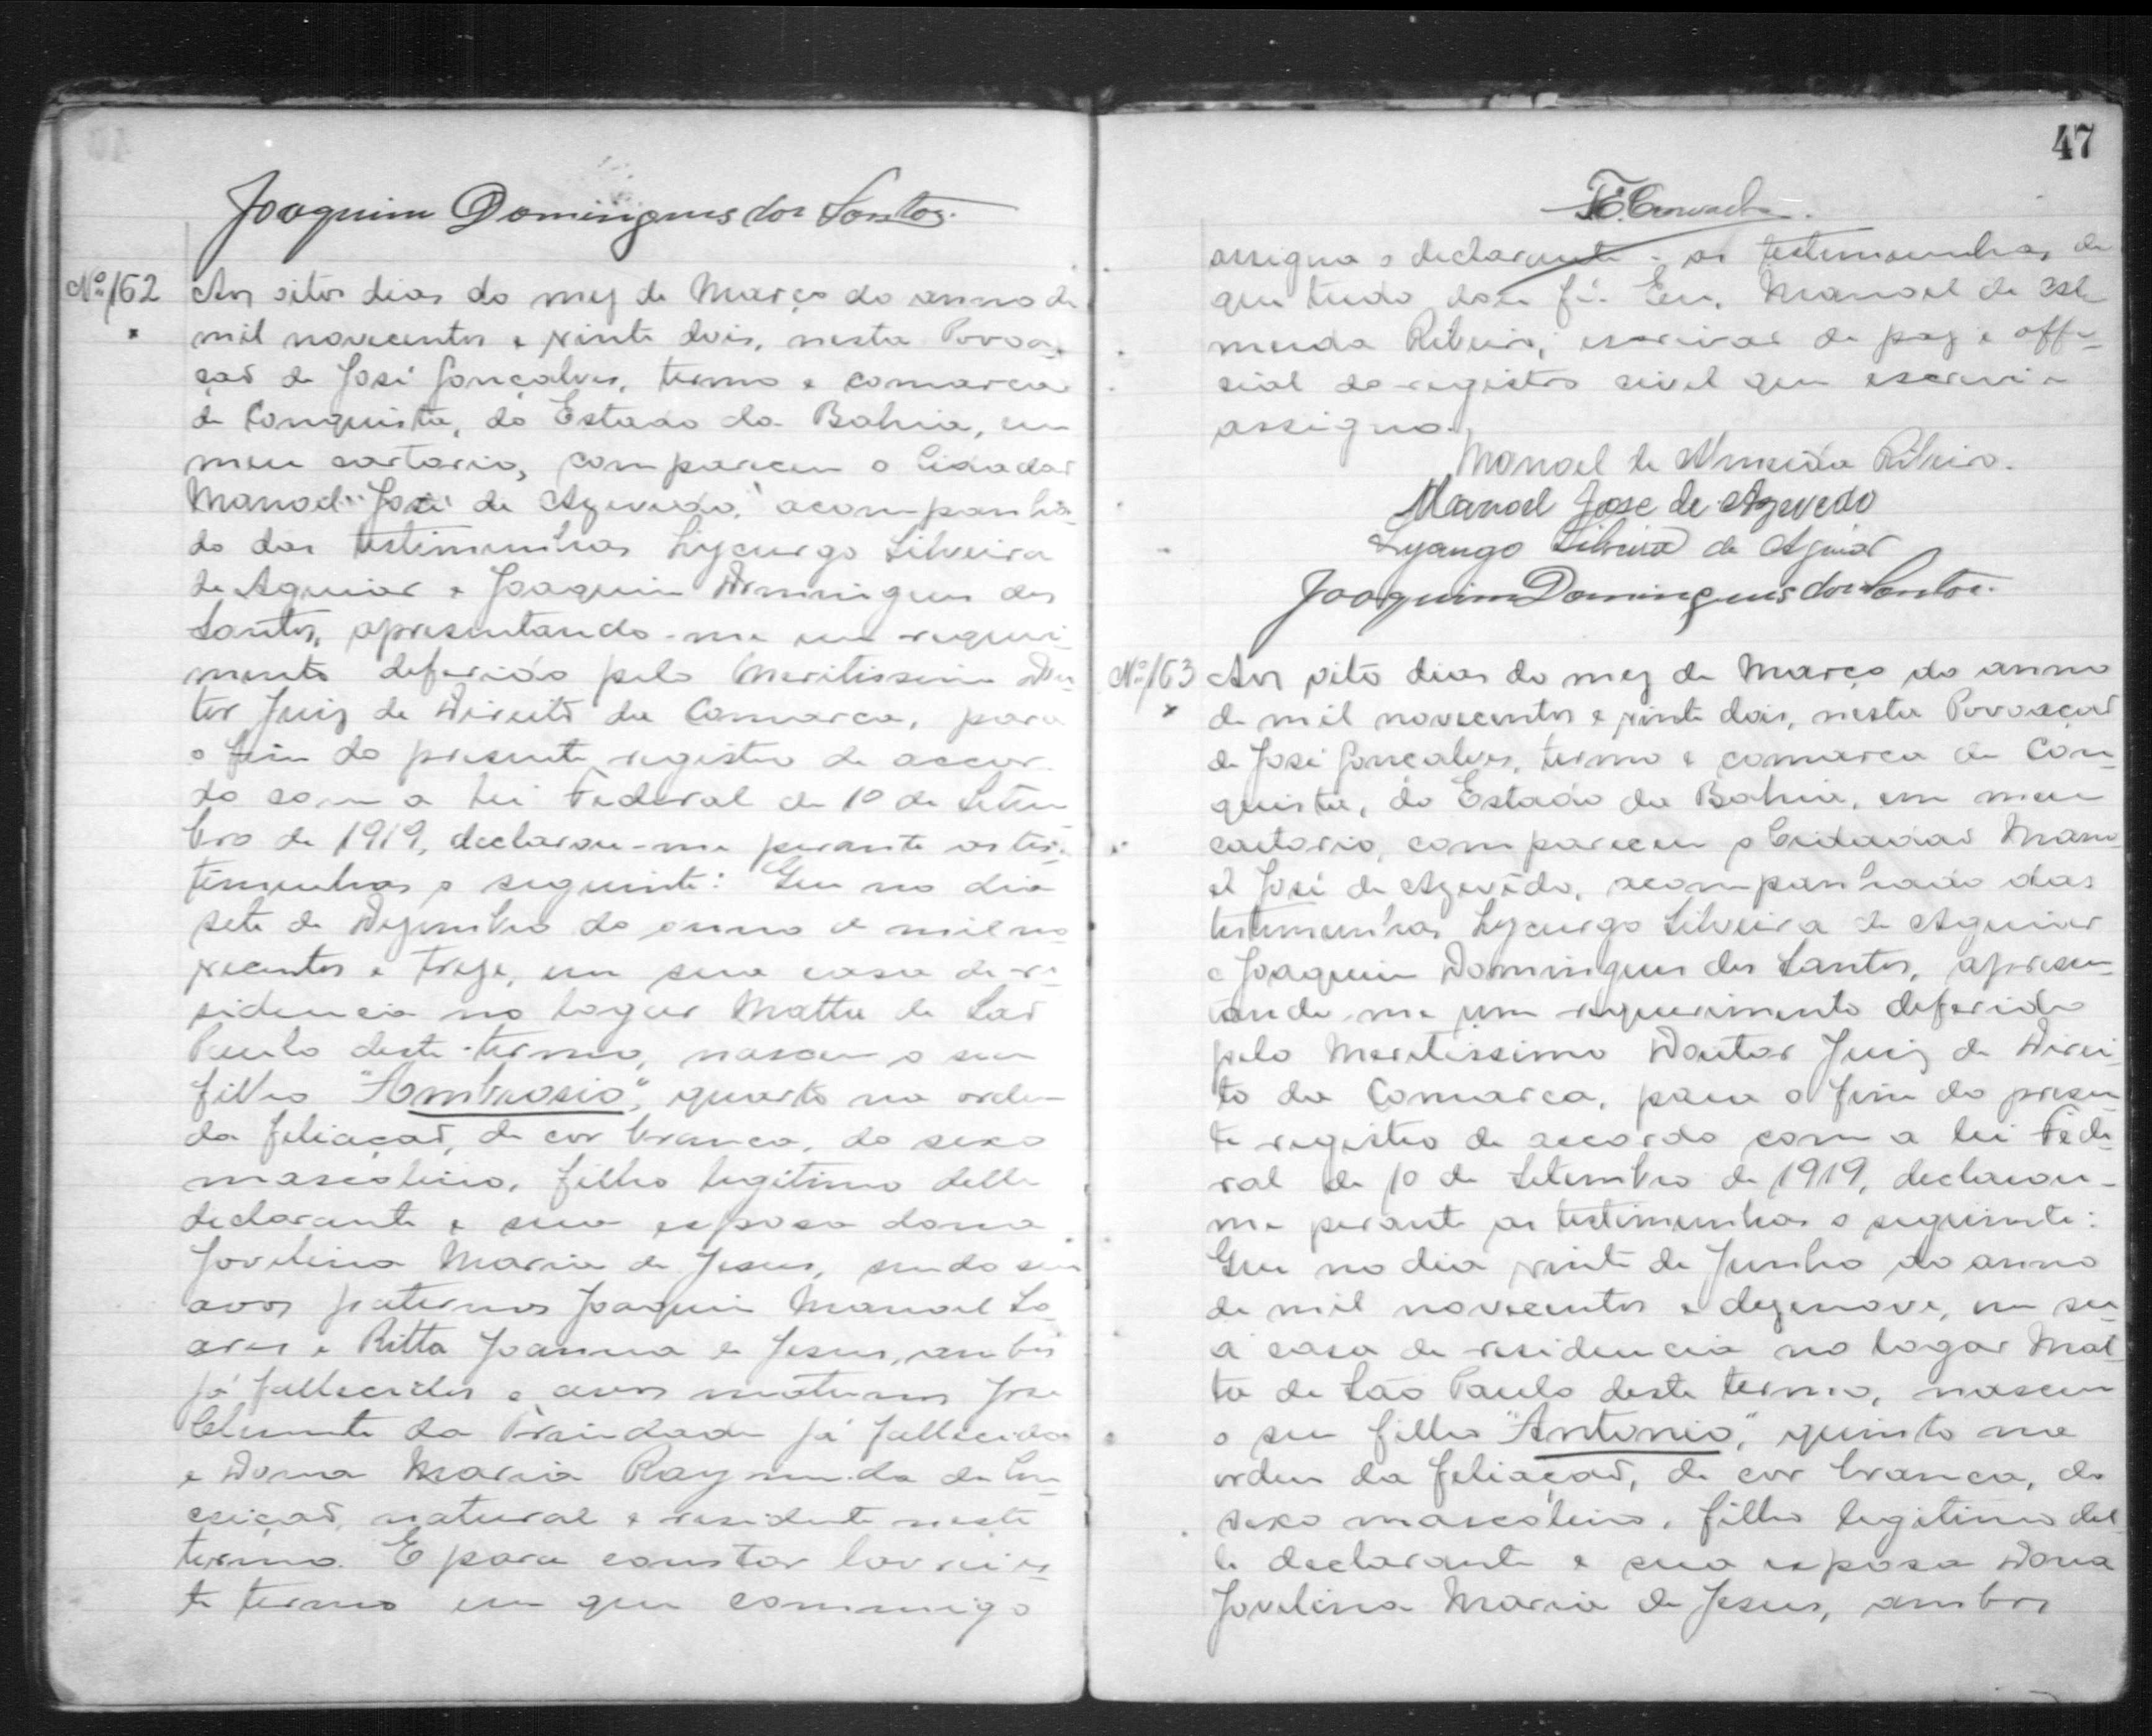 Joaquim Domingues dos Santos.
Nº 162 Aos oitos dias do mez de Março do anno de
mil novecentos e vinte dois, nesta Povoa-
çaõ de José Gonçalves, termo e comarca
de Conquista, do Estado da Bahia, em
meu cartorio, compareceu o Cidadaõ
Manoel "José de Azevedo," acompanha-
do das testimunhas Lycurgo Silveira
de Aguiar e Joaquim Domingues dos
Santos, apresentando-me um requiri-
mento deferido pelo Meritissimo Dou-
tor Juiz de Direito da Comarca, para
o fim do presente registro de accor-
do com a lei Federal de 10 de Setem-
bro de 1919, declarou-me perante as tes-
timunhas o seguinte: Que no dia
sete de Dezembro do anno de mil no-
vecentos e treze, em sua casa de re-
sidencia no logar Matta de Saõ
Paulo deste termo, nasceu o seu
filho "Ambrosio", quarto na ordem
da filiaçaõ, de cor branca, do sexo
mascolino, filho legitimo delle
declarante e sua esposa dona
Jovelina Maria de Jesus, sendo seus
avos paternos Joaquim Manoel So-
ares e Ritta Joanna de Jesus, ambos
já fallecidos e avos maternos José
Clemente da Trindade já fallecido
e Dona Maria Raymunda da Con-
ceiçaõ, natural e residente neste
termo. E para constar lavrei es-
te termo em que commigo
47
assigna o declarante e as testemunhas, de
que tudo dou fé. Eu, Manoel de Al-
meida Ribeiro, escrivaõ de paz e offi-
cial do registro civel que escrevi e
assigno.
Manoel de Almeida Ribeiro.
Manoel Jose de Azevedo
Lycurgo Silveira de Aguiar
Joaquim Domingues dos Santos.
Nº 163 Aos oito dias do mez de Março do anno
de mil novecentos e vinte dois, nesta Povoaçaõ
de José Gonçalves, termo e comarca de Con-
quista, do Estado da Bahia, em meu
cartorio, compareceu o Cidadaõ Mano-
el José de Azevêdo, acompanhado das
testimunhas Lycurgo Silveira de Aguiar
e Joaquim Domingues dos Santos, apresen-
tando-me um requerimento deferido
pelo Meritissimo Doutor Juiz de Direi-
to da Comarca, para o fim do presen-
te registro de accordo com a lei Fede-
ral de 10 de Setembro de 1919, declarou-
me perante as testimunhas o seguinte:
Que no dia vinte de Junho do anno
de mil novecentos e dezenove, em su-
a casa de residencia no logar Mat-
ta de São Paulo deste termo, nasceu
o seu filho "Antonio", quinto na
ordem da filiaçaõ, de cor branca, do
sexo mascolino, filho legitimo del-
le declarante e sua esposa Dona
Jovelina Maria de Jesus, ambos